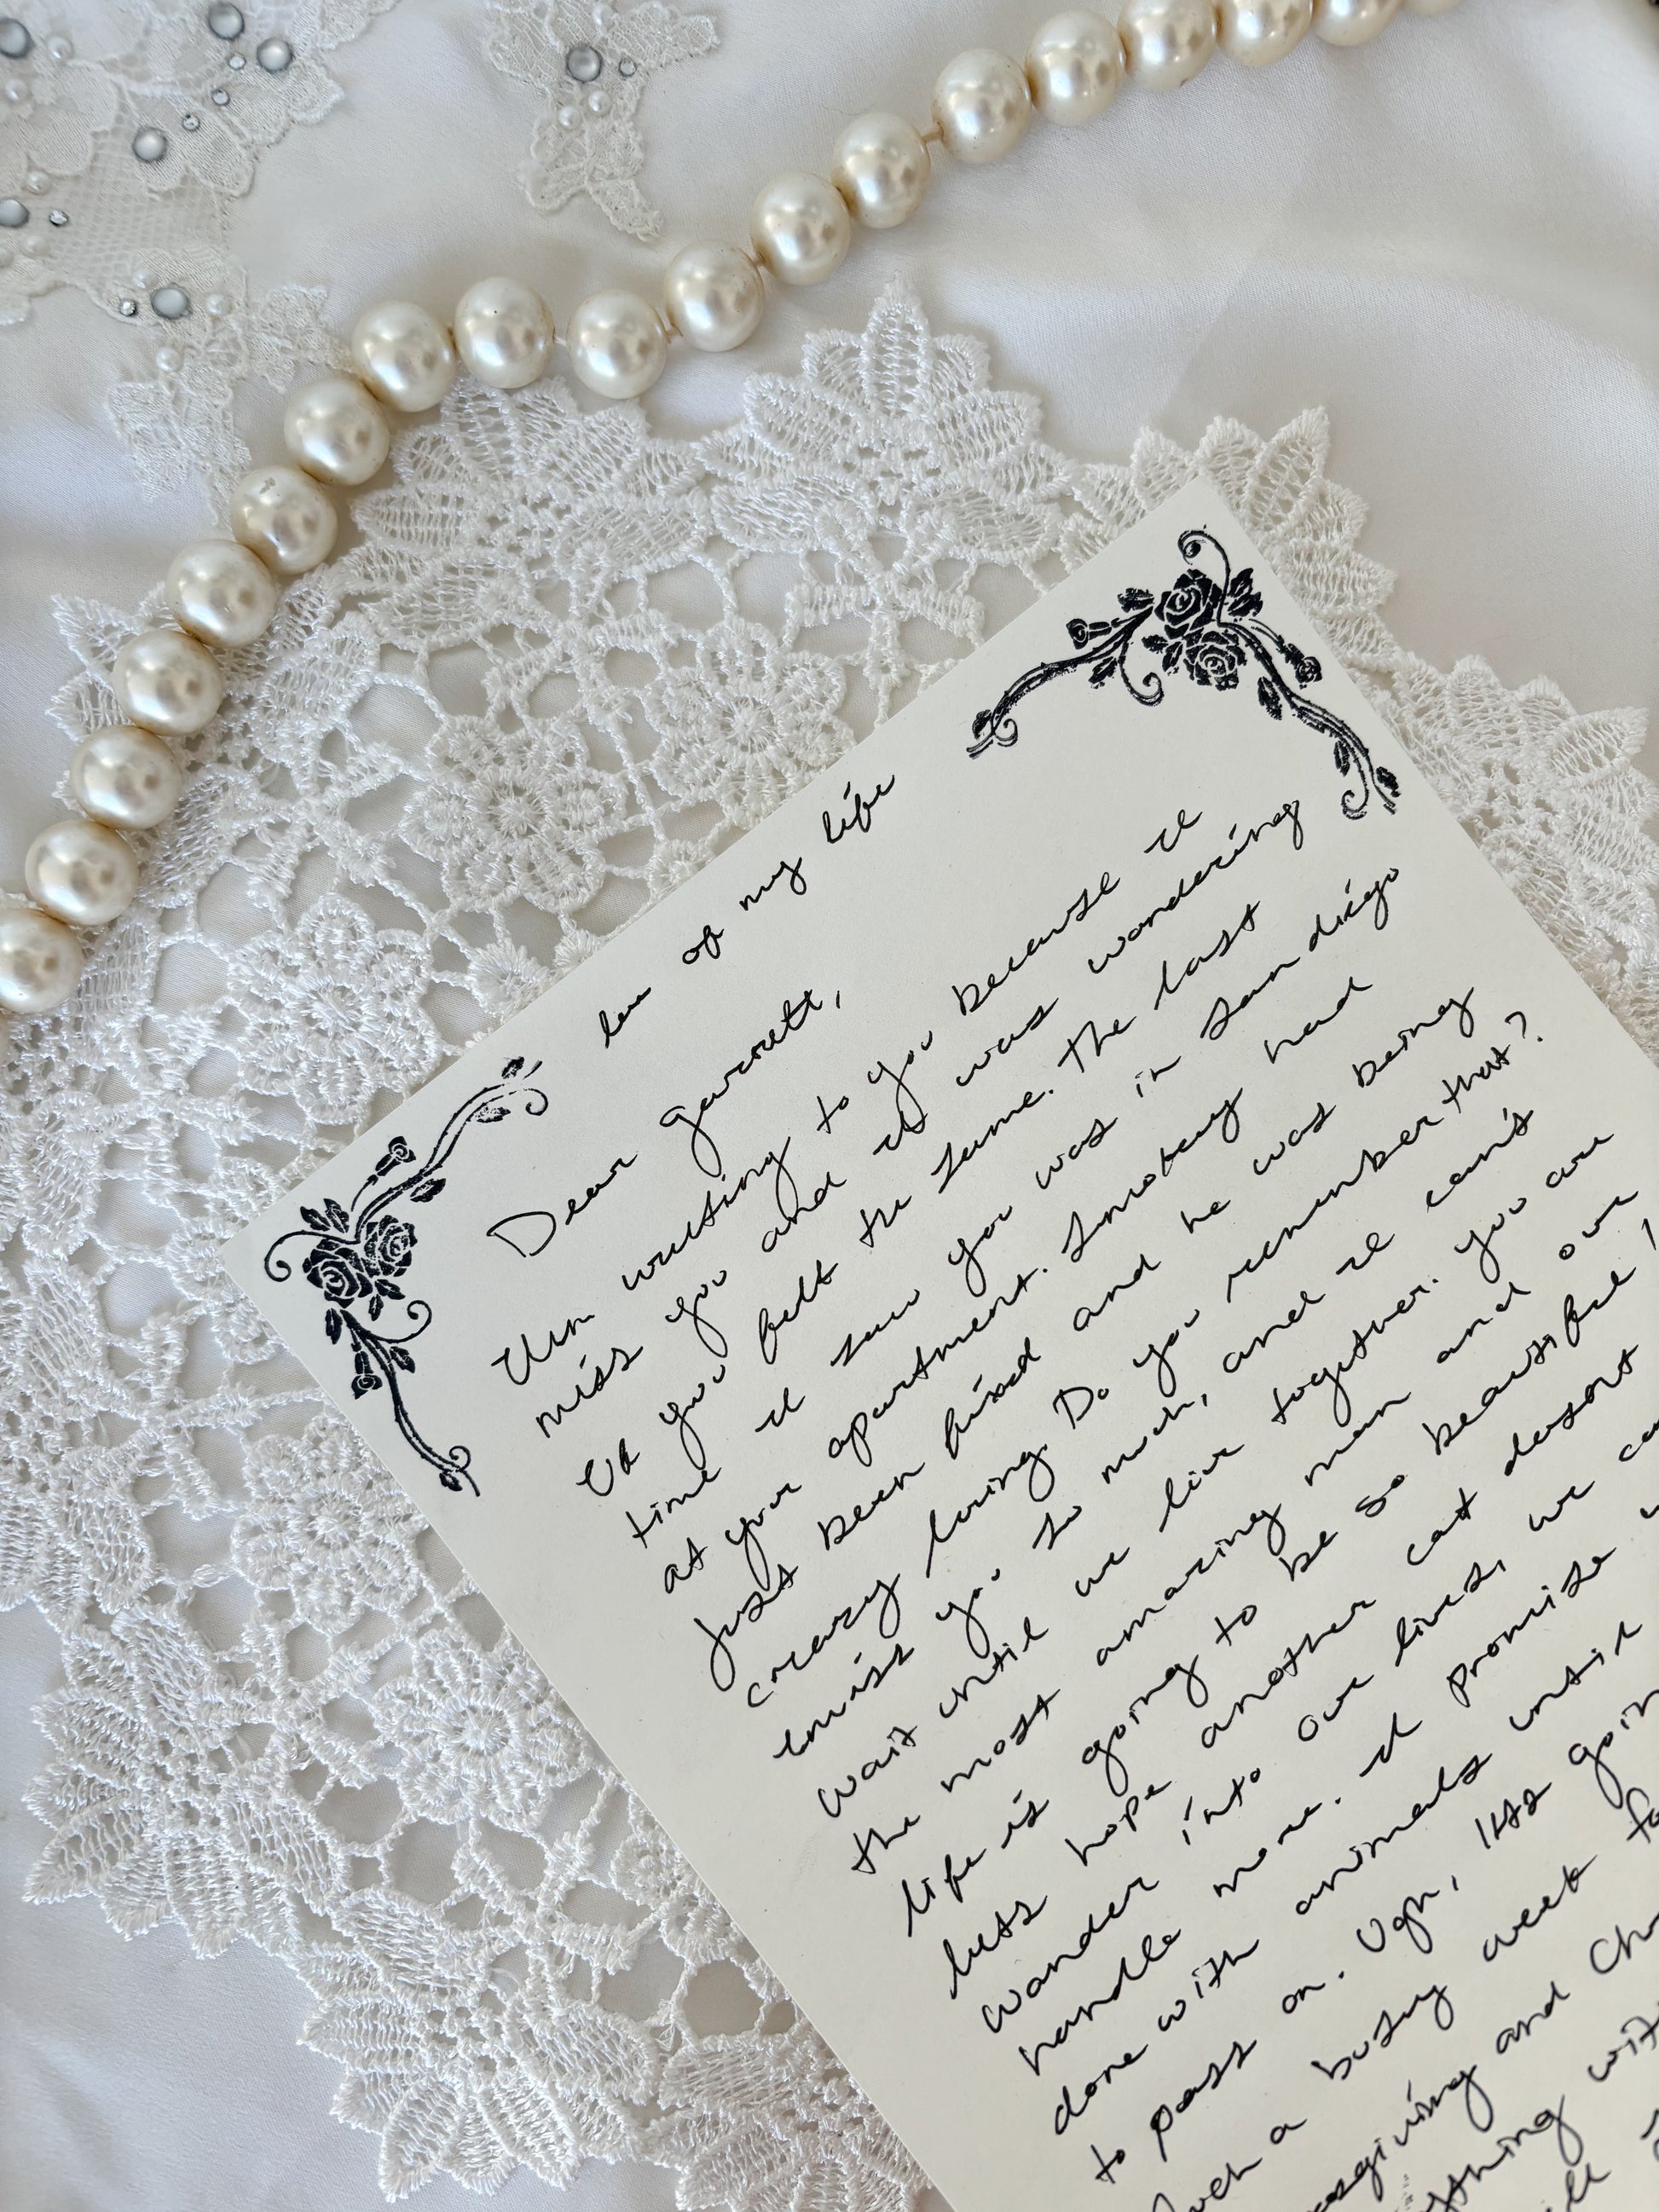 love of my life
Dear garrett,
I'm writing to you because I
miss you and I was wondering
if you felt the same. The last
time I saw you was in san diego
at your apartment. Smokey had
just been fixed and he was being
crazy loving. Do you remember that?
I miss you so much, and I can't
wait until we live together. you are
the most amazing man and our
life is going to be so beautiful!
lets hope another cat doesnt
wander into our lives, we
handle more. I promise
done with animals until
to pass on. Ugh, its
such a busy week
and